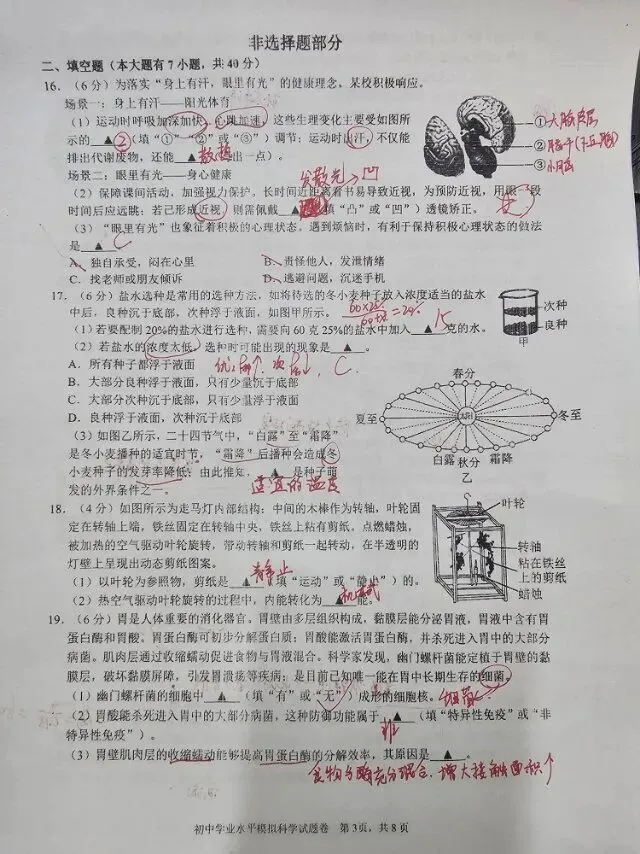 非选择题部分
二、填空题（本大题有7小题，共40分）
16.（6分）为落实“身上有汗，眼里有光”的健康理念，某校积极响应。
场景一：身上有汗——阳光体育
（1）运动时呼吸加深加快，心跳加速，这些生理变化主要受如图所
示的 ▲ ②（填“①”“②”或“③”）调节；运动时出汗，不仅能
排出代谢废物，还能 ▲ 散热（写出一点）。
①大脑皮层
②脑干（下丘脑）
③小脑
场景二：眼里有光——身心健康
发散光→凹
（2）保障课间活动，加强视力保护。长时间近距离看书易导致近视，为预防近视，用眼一段
时间后应远眺；若已形成近视，则需佩戴 ▲ （填“凸”或“凹”）透镜矫正。
（3）“眼里有光”也象征着积极的心理状态。遇到烦恼时，有利于保持积极心理状态的做法
是 ▲ C
A．独自承受，闷在心里
B．责怪他人，发泄情绪
C．找老师或朋友倾诉
D．逃避问题，沉迷手机
17.（6分）盐水选种是常用的选种方法，如将待选的冬小麦种子放入浓度适当的盐水
中后，良种沉于底部，次种浮于液面，如图甲所示。
次种
良种
甲
（1）若要配制20%的盐水进行选种，需要向60克25%的盐水中加入 ▲ 15 克的水。
（2）若盐水的浓度太低，选种时可能出现的现象是 ▲ 。
A．所有种子都浮于液面
C.
B．大部分良种浮于液面，只有少量沉于底部
C．大部分次种沉于底部，只有少量浮于液面
D．良种浮于液面，次种沉于底部
春分
夏至
冬至
白露 秋分 霜降
乙
（3）如图乙所示，二十四节气中，“白露”至“霜降”
是冬小麦播种的适宜时节，“霜降”后播种会造成冬
小麦种子的发芽率降低；由此推知， ▲ 是种子萌
发的外界条件之一。 适宜的温度
18.（4分）如图所示为走马灯内部结构：中间的木棒作为转轴，叶轮固
定在转轴上端，铁丝固定在转轴中央，铁丝上粘有剪纸。点燃蜡烛，
被加热的空气驱动叶轮旋转，带动转轴和剪纸一起转动，在半透明的
灯壁上呈现出动态剪纸图案。
叶轮
转轴
粘在铁丝
上的剪纸
蜡烛
（1）以叶轮为参照物，剪纸是 ▲ 静止（填“运动”或“静止”）的。
（2）热空气驱动叶轮旋转的过程中，内能转化为 ▲ 机械 能。
19.（6分）胃是人体重要的消化器官。胃壁由多层组织构成，黏膜层能分泌胃液，胃液中含有胃
蛋白酶和胃酸。胃蛋白酶可初步分解蛋白质；胃酸能激活胃蛋白酶，并杀死进入胃中的大部分
病菌。肌肉层通过收缩蠕动促进食物与胃液混合。科学家发现，幽门螺杆菌能定植于胃壁的黏
膜层，破坏黏膜屏障，引发胃溃疡等疾病；是目前已知唯一能在胃中长期生存的细菌。
（1）幽门螺杆菌的细胞中 ▲ （填“有”或“无”）成形的细胞核。 细菌
（2）胃酸能杀死进入胃中的大部分病菌，这种防御功能属于 ▲ （填“特异性免疫”或“非
特异性免疫”）。 非
（3）胃壁肌肉层的收缩蠕动能够提高胃蛋白酶的分解效率，其原因是 ▲ 。
食物与酶充分混合，增大接触面积↑
初中学业水平模拟科学试题卷 第3页，共8页